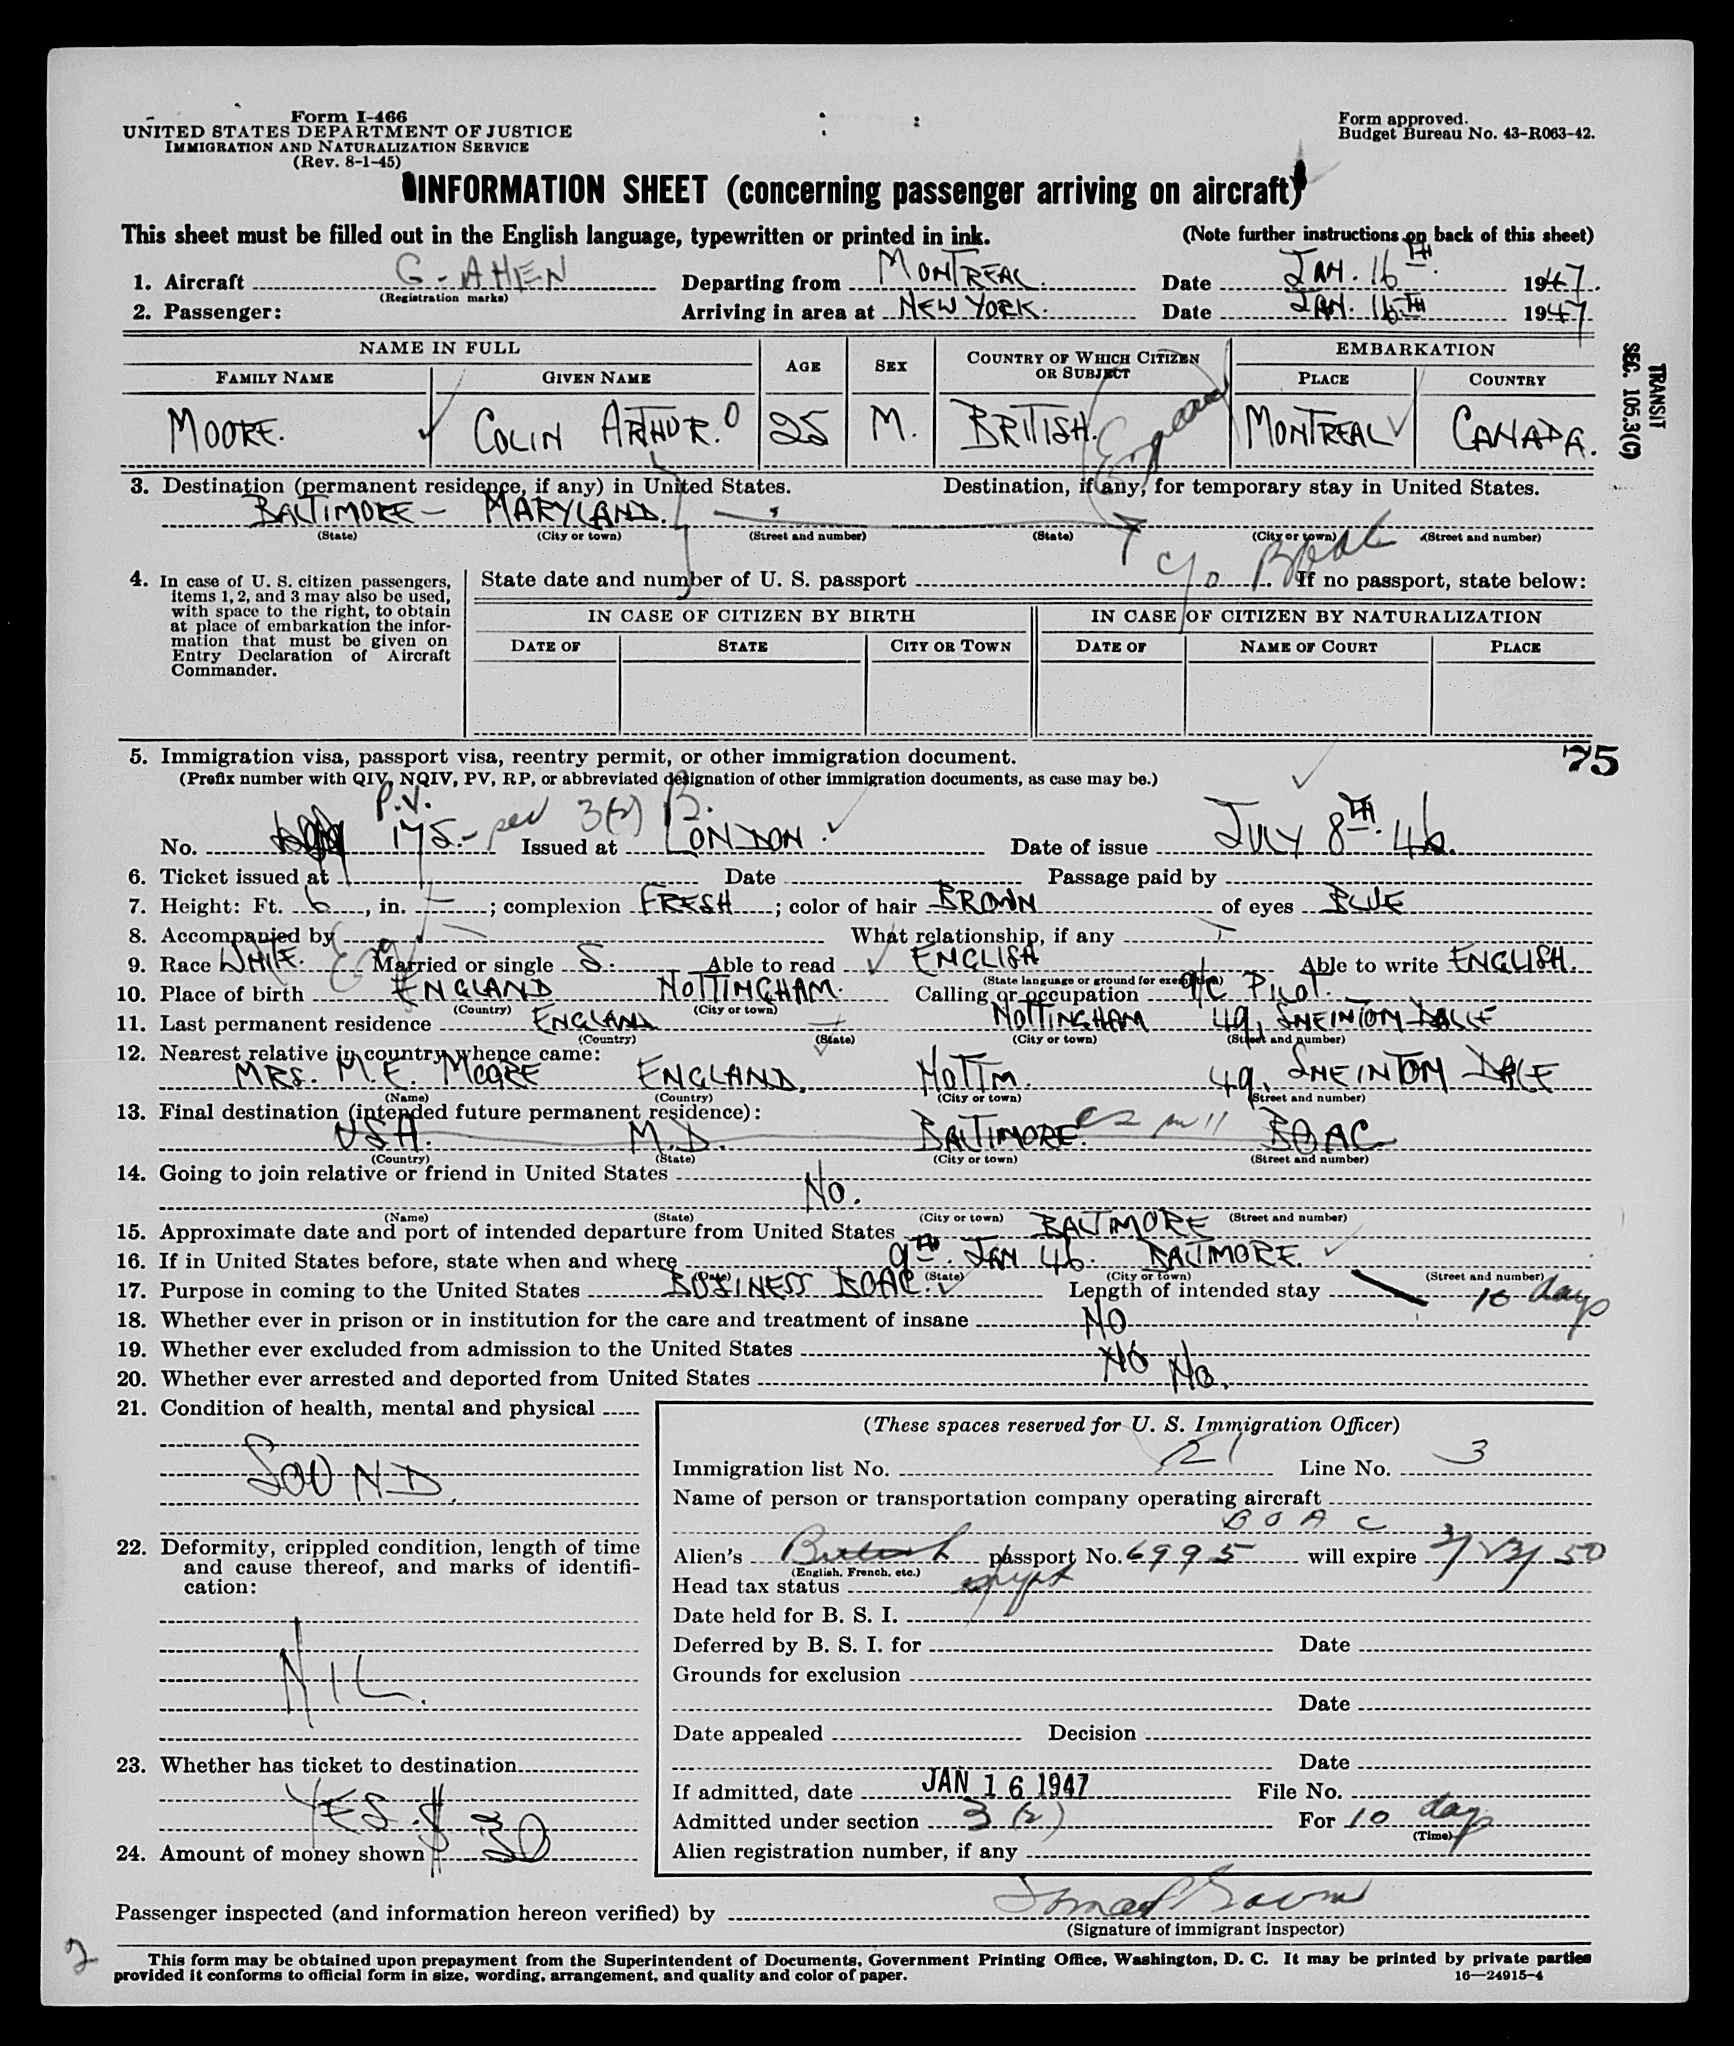 Form I-466
UNITED STATES DEPARTMENT OF JUSTICE
IMMIGRATION AND NATURALIZATION SERVICE
(Rev. 8-1-45)
Form approved.
Budget Bureau No. 43-R063-42.
INFORMATION SHEET (concerning passenger arriving on aircraft)
This sheet must be filled out in the English language, typewritten or printed in ink. (Note further instructions on back of this sheet)
1. Aircraft G-AHEN Departing from MONTREAL. Date JAN. 16TH. 1947.
(Registration marks)
2. Passenger: Arriving in area at NEW YORK. Date JAN. 16TH 1947
NAME IN FULL AGE SEX COUNTRY OF WHICH CITIZEN OR SUBJECT EMBARKATION
FAMILY NAME GIVEN NAME PLACE COUNTRY
MOORE. COLIN ARTHUR. 25 M. BRITISH. England MONTREAL CANADA.
TRANSIT
SEC. 105.3(C)
3. Destination (permanent residence, if any) in United States. Destination, if any, for temporary stay in United States.
BALTIMORE - MARYLAND.
(State) (City or town) (Street and number) (State) (City or town) (Street and number)
c/o BOAC
4. In case of U. S. citizen passengers, items 1, 2, and 3 may also be used, with space to the right, to obtain at place of embarkation the information that must be given on Entry Declaration of Aircraft Commander.
State date and number of U. S. passport If no passport, state below:
IN CASE OF CITIZEN BY BIRTH IN CASE OF CITIZEN BY NATURALIZATION
DATE OF STATE CITY OR TOWN DATE OF NAME OF COURT PLACE
5. Immigration visa, passport visa, reentry permit, or other immigration document. 75
(Prefix number with QIV, NQIV, PV, RP, or abbreviated designation of other immigration documents, as case may be.)
P.V.
No. 175- 3(2) B. Issued at LONDON. Date of issue JULY 8TH. 46.
6. Ticket issued at Date Passage paid by
7. Height: Ft. 6, in. -; complexion FRESH; color of hair BROWN of eyes BLUE
8. Accompanied by What relationship, if any
9. Race WHITE. Eng Married or single S. Able to read ENGLISH Able to write ENGLISH.
(State language or ground for exemption)
10. Place of birth ENGLAND NOTTINGHAM. Calling or occupation A/C PILOT.
(Country) (City or town)
11. Last permanent residence ENGLAND NOTTINGHAM 49, SNEINTON DALE
(Country) (State) (City or town) (Street and number)
12. Nearest relative in country whence came:
MRS. M.E. MOORE ENGLAND. NOTTM. 49, SNEINTON DALE
(Name) (Country) (City or town) (Street and number)
13. Final destination (intended future permanent residence):
USA. M.D. BALTIMORE. BOAC
(Country) (State) (City or town) (Street and number)
14. Going to join relative or friend in United States
NO.
(Name) (State) (City or town) (Street and number)
15. Approximate date and port of intended departure from United States BALTIMORE
16. If in United States before, state when and where 9TH. JAN 46. BALTIMORE.
(State) (City or town) (Street and number)
17. Purpose in coming to the United States BUSINESS BOAC. Length of intended stay 10 days
18. Whether ever in prison or in institution for the care and treatment of insane NO
19. Whether ever excluded from admission to the United States NO
20. Whether ever arrested and deported from United States NO.
21. Condition of health, mental and physical
SOUND.
22. Deformity, crippled condition, length of time and cause thereof, and marks of identification:
NIL.
23. Whether has ticket to destination
YES.
24. Amount of money shown $ 30
(These spaces reserved for U. S. Immigration Officer)
Immigration list No. 21 Line No. 3
Name of person or transportation company operating aircraft
BOAC
Alien's British passport No. 6995 will expire 50
(English, French, etc.)
Head tax status
Date held for B. S. I.
Deferred by B. S. I. for Date
Grounds for exclusion
Date
Date appealed Decision
Date
If admitted, date JAN 16 1947 File No.
Admitted under section 3 (2) For 10 days
(Time)
Alien registration number, if any
Passenger inspected (and information hereon verified) by
(Signature of immigrant inspector)
2
This form may be obtained upon prepayment from the Superintendent of Documents, Government Printing Office, Washington, D. C. It may be printed by private parties
provided it conforms to official form in size, wording, arrangement, and quality and color of paper. 16—24915-4